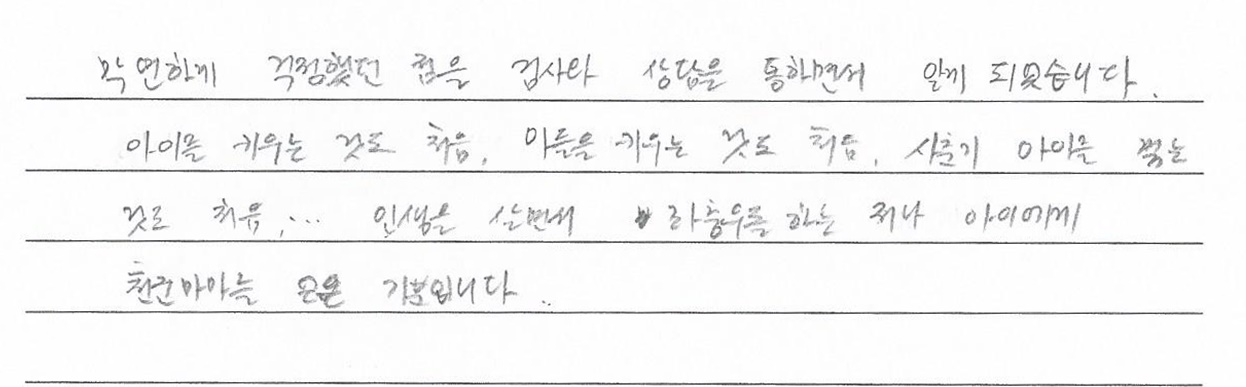 막연하게 걱정했던 점을 검사와 상담을 통하면서 알게 되었습니다.
아이를 키우는 것도 처음, 아들을 키우는 것도 처음, 사춘기 아이를 겪는
것도 처음,... 인생을 살면서 좌충우돌 하는 저나 아이에게
천군마마를 얻은 기분입니다.